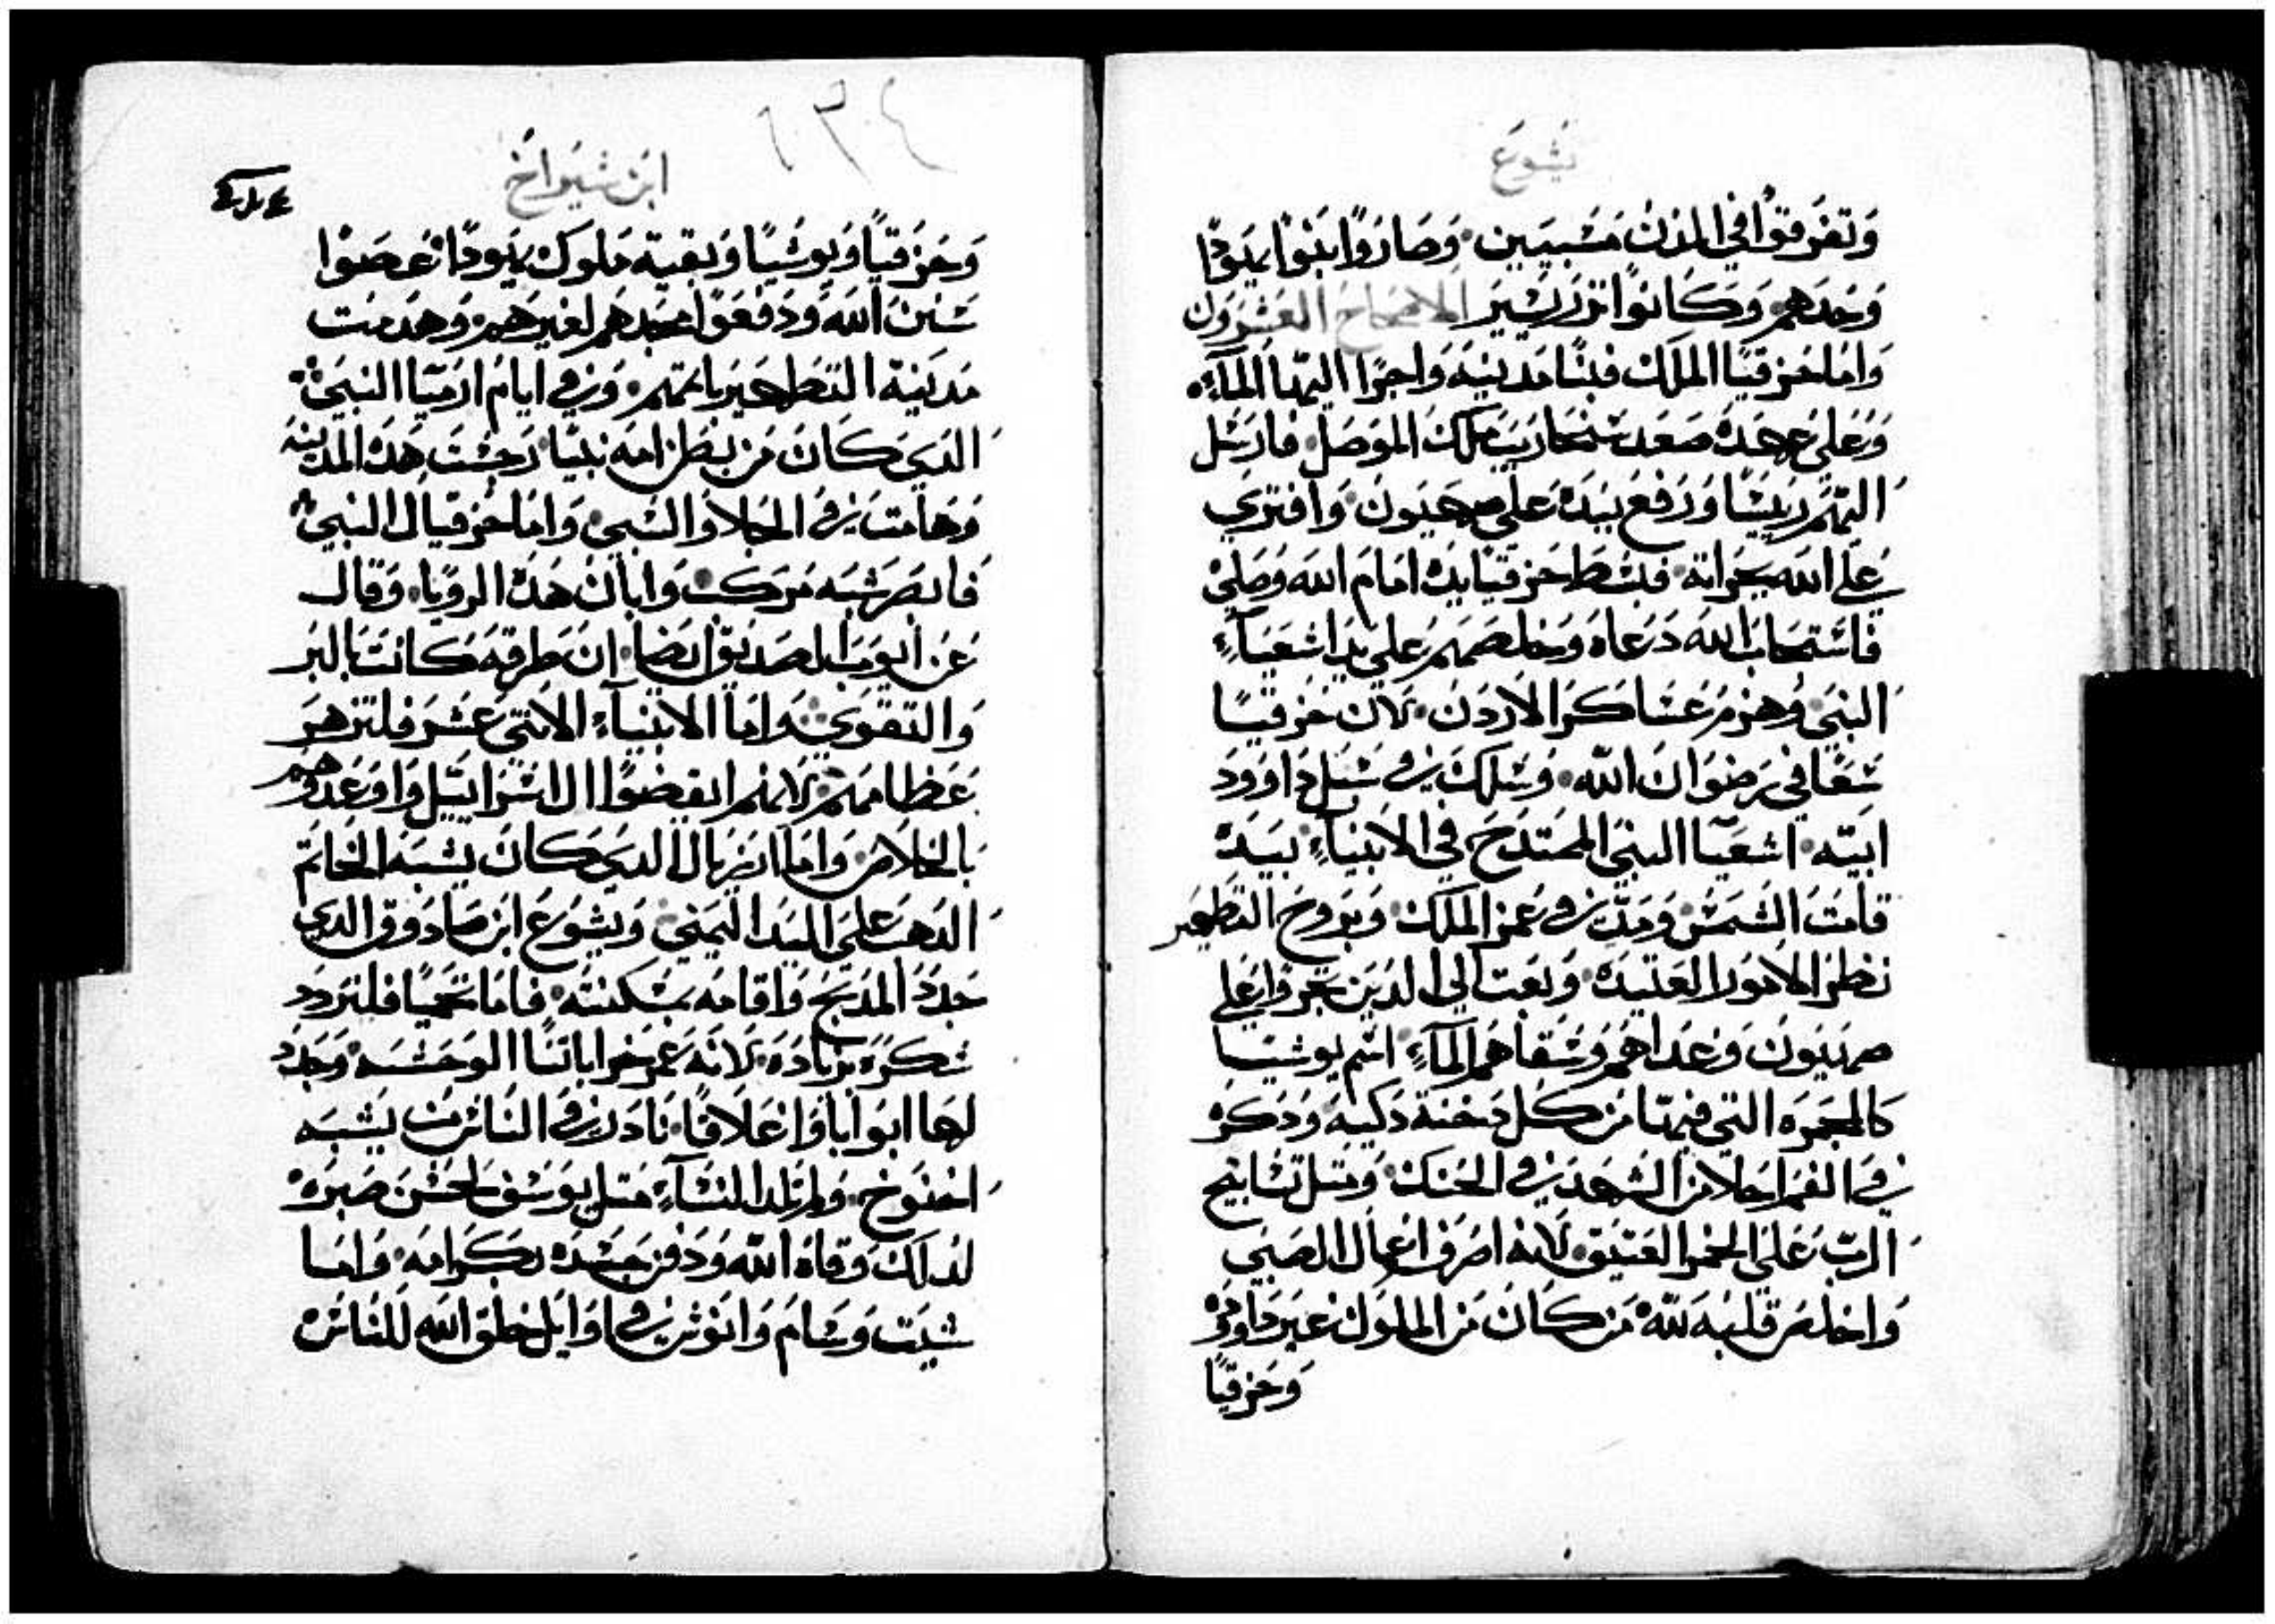 يشوع
وتفرقوا في المدن مسبيين وصاروا بنوا يهودا
وحدهم وكانوا نزر يسير الاصحاح العشرون
واما حزقيا الملك فبنا مدينه واجرا اليها المآء
وعلى عهده صعد سنحاريب ملك الموصل فارسل
اليهم ربيشا ورفع بيده على صهيون وافترى
على الله بجراته فبسط حزقيا يده امام الله وصلى
فاستجاب الله دعاه وخلصهم على يد اشعيآء
النبي وهزم عساكر الاردن لان حزقيا
سعا في رضوان الله وسلك في سبل داوود
ابيه اشعيا النبي الممتدح في الانبيآء بيده
قامت الشمس ومد في عمر الملك وبروح التطهير
نظر الامور العتيده وبعث الى الدين تحرقوا على
صهيون وعداهم وسقاهم المآء اسم يوشيا
كالمجمره التي فيها من كل دخنة دكيه ودكره
في الفم احلا من الشهد في الحنك ومثل تسابيح
الرب على الخمر العتيق لانه اصرف اعمال الصبي
واخلص قلبه لله من كان من الملوك غير داوود
وحزقيا
٦٣٤
ابن شيراخ
وحزقيا ويوشيا وبقية ملوك يهودا عصوا
سنن الله ودفعوا مجدهم لغيرهم وهدمت
مدينة التطهير باتمهم وفي ايام ارميا النبي
الدي كان من بطن امه نبيا رجست هده المدينه
وهامت في الجلا والسبي واما حزقيال النبي
فابصر شبه مركب وابان هده الرويا وقال
عن ايوب الصديق ايضا ان طرقه كانت بالبر
والتقوي واما الانبيآء الاتني عشر فلتزهر
عظامهم لانهم انهضوا ال اسراييل واوعدوهم
بالخلاص واما ازربال الدي كان يشبه الخاتم
الدهب على اليد اليمني ويشوع ابن صادوق الدي
جدد المدبح واقامه بسكنته فاما نحميا فليتردد
شكره بزياده لانه عمر خراباتنا الوحشه وجدد
لها ابوابا واغلاقا نادر في الناس من يشبه
اخنوخ ولم تلد النسآء مثل يوسف لحسن صبره
لدلك وقاه الله ودفن جسده بكرامه واما
شيت وسام وانوش في اوايل خلق الله للناس